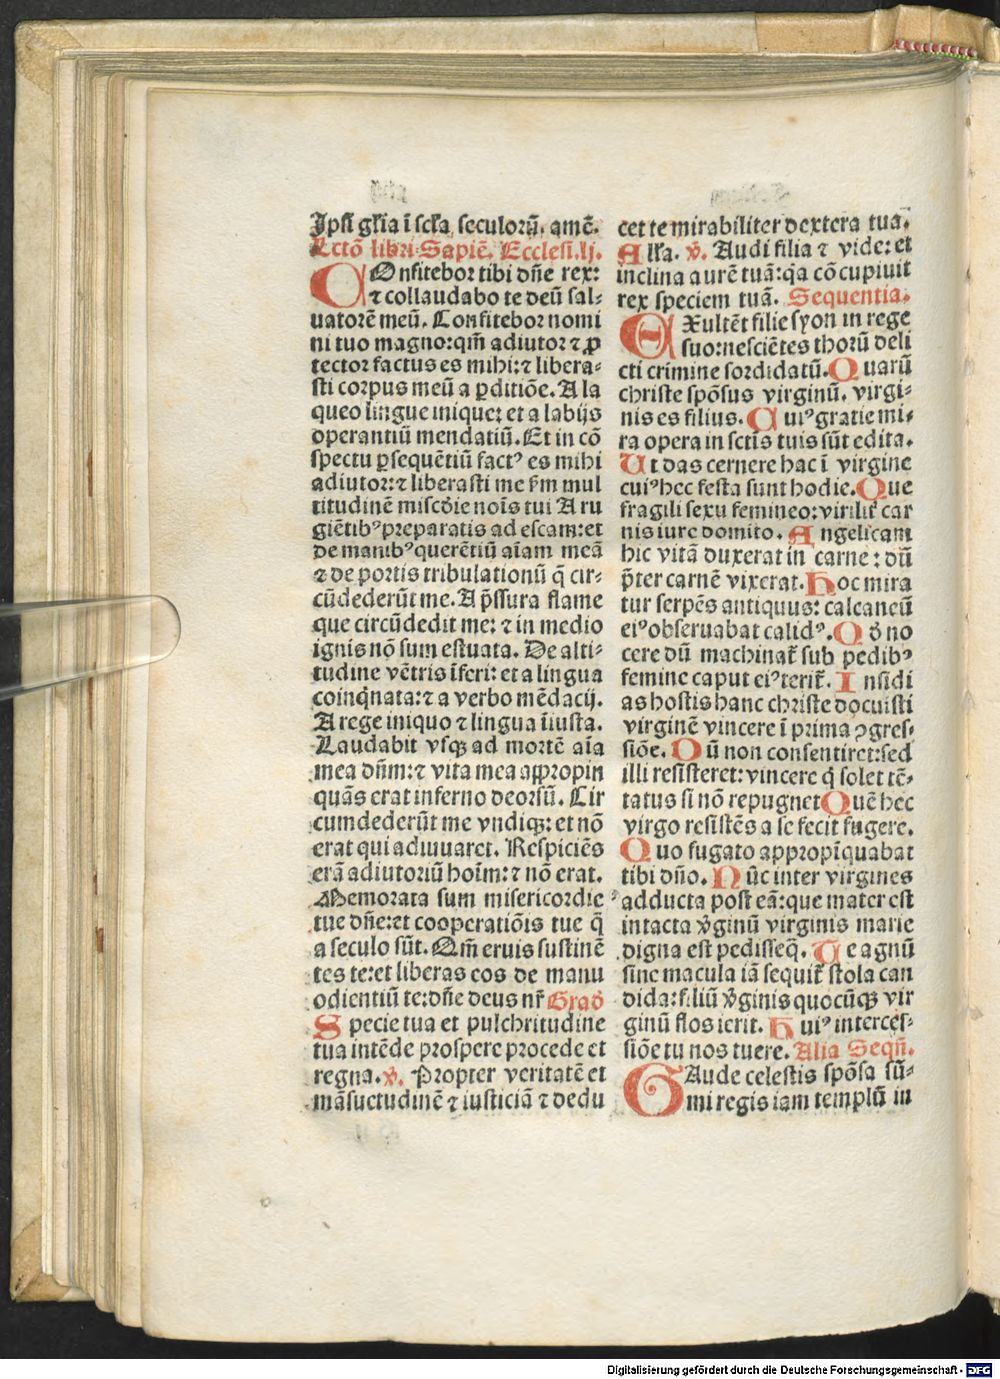 Ipsi gl̄ia ī sc̄la seculoꝝ̄. amē.
Lctō libri Sapiē. Eccłesi. lj.
COnfitebor tibi dn̄e rex:
⁊ collaudabo te deū sal⸗
uatorē meū. Confitebor nomi
ni tuo magno: qm̄ adiutor ⁊ ꝓ
tector factus es mihi: ⁊ libera⸗
sti corpus meū a ꝑditiōe. A la
queo lingue inique: et a labijs
operantiū mendatiū. Et in cō
spectu ꝑsequētiū factꝰ es mihi
adiutor: ⁊ liberasti me sm̄ mul
titudinē misc̄die noīs tui A ru
giētibꝰ preparatis ad escam: et
de manibꝰ querētiū aīam meā
⁊ de portis tribulationū q̄ cir⸗
cūdederūt me. A p̄ssura flame
que circūdedit me: ⁊ in medio
ignis nō sum estuata. De alti⸗
tudine vētris īferi: et a lingua
coinq̄nata: ⁊ a verbo mēdacij.
A rege iniquo ⁊ lingua īiusta.
Laudabit vsqꝫ ad mortē aīa
mea dn̄m: ⁊ vita mea aꝓpropin
quās erat inferno deorsū. Cir
cumdederūt me vndiqꝫ: et nō
erat qui adiuuaret. Respiciēs
erā adiutoriū hoīm: ⁊ nō erat.
Memorata sum misericordie
tue dn̄e: et cooperatiōis tue q̄
a seculo sūt. Qm̄ eruis sustinē
tes te: et liberas eos de manu
odientiū te: dn̄e deus nr̄ Grad̄
Specie tua et pulchritudine
tua intēde prospere procede et
regna. v̄. Propter veritatē et
māsuetudinē ⁊ iusticiā ⁊ dedu
cet te mirabiliter dextera tua.
Alła. v̄. Audi filia ⁊ vide: et
inclina aurē tuā: q̄a cōcupiuit
rex speciem tuā. Sequentia.
EXultēt filie syon in rege
suo: nesciētes thorū deli
cti crimine sordidatū. Quarū
christe spōsus virginū. virgi⸗
nis es filius. Cuiꝰ gratie mi⸗
ra opera in sctīs tuis sūt edita.
Ut das cernere hac ī virgine
cuiꝰ hec festa sunt hodie. Que
fragili sexu femineo: virilit̄ car
nis iure domito. Angelicam
hic vitā duxerat in carne: dū
p̄ter carnē vixerat. Hoc mira
tur serpēs antiquus: calcaneū
eiꝰ obseruabat calidꝰ. Qd̄ no
cere dū machinat̄ sub pedibꝰ
femine caput eiꝰ terit̄. Insidi
as hostis hanc christe docuisti
virginē vincere ī prima ꝯgres⸗
siōe. Dū non consentiret: sed
illi resisteret: vincere q̄ solet tē⸗
tatus si nō repugnet Quē hec
virgo resistēs a se fecit fugere.
Quo fugato appropīquabat
tibi dn̄o. Nūc inter virgines
adducta post eā: que mater est
intacta v̄ginū virginis marie
digna est pedisseq̄. Te agnū
sine macula iā sequit̄ stola can
dida: filiū v̄ginis quocūqꝫ vir
ginū flos ierit. Huiꝰ interces⸗
siōe tu nos tuere. Alia Seqn̄.
GAude celestis spōsa sū⸗
mi regis iam templū in
Digitalisierung gefördert durch die Deutsche Forschungsgemeinschaft - DFG